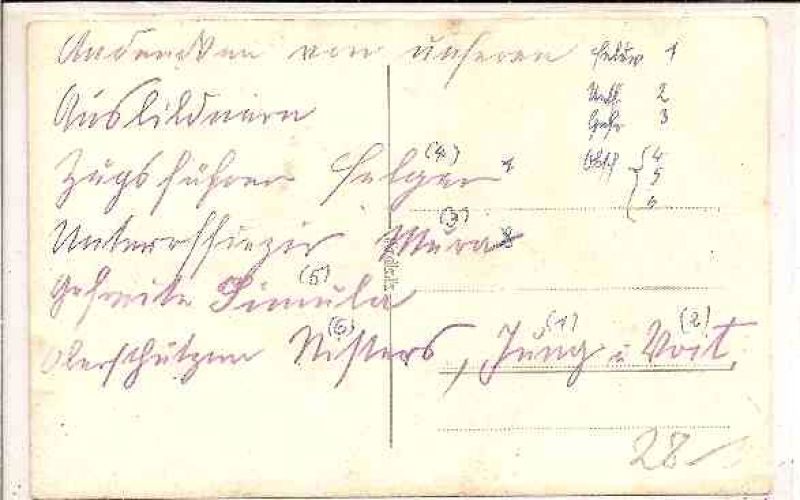 Andenken von unseren
Ausbildnern
Zugsführer Helger (4) 1
Unteroffizier Mura (3)
Gefreite Simula (5)
Oberschützen Nisters (6), Jung (1) u Voit (2)
Feldw 1
Uffz 2
Gefr 3
Obsch { 4
5
6
28